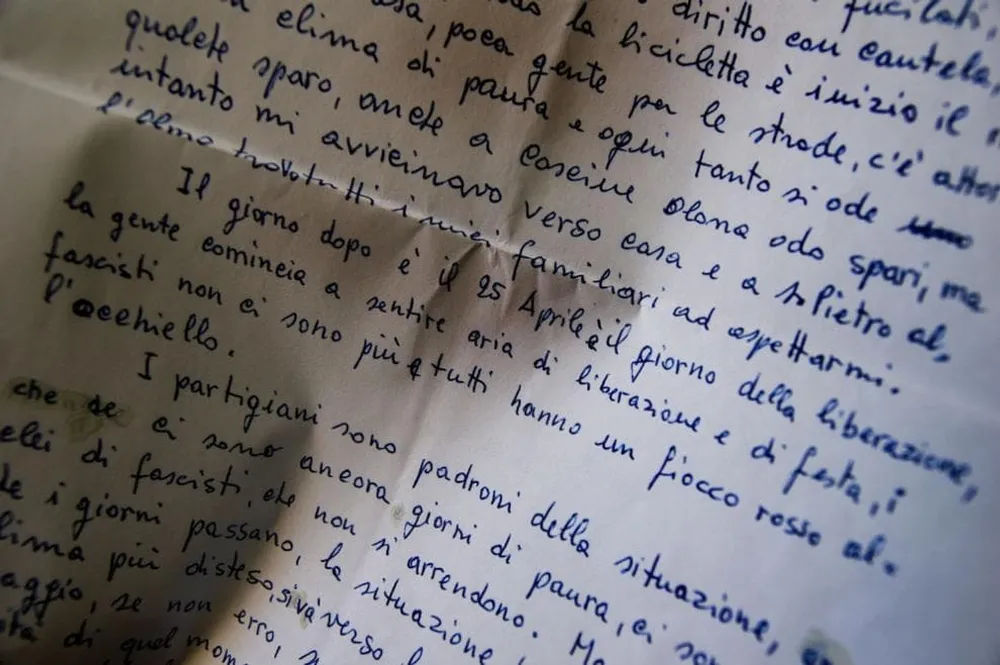 fucilati,
la bicicletta è inizio il
diritto con cautela,
poca gente per le strade, c'è
clima di paura e ogni tanto si ode
qualche sparo, anche a cascine olona odo spari, ma
intanto mi avvicinavo verso casa e a S. Pietro al,
l'olmo trovo tutti i miei familiari ad aspettarmi.
Il giorno dopo è il 25 Aprile è il giorno della liberazione,
la gente comincia a sentire aria di liberazione e di festa, i
fascisti non ci sono più e tutti hanno un fiocco rosso al.
l'occhiello.
I partigiani sono padroni della situazione,
che se ci sono ancora giorni di paura, ci
di fascisti, che non si arrendono. Ma
i giorni passano, la situazione
più disteso, si và verso
se non erro,
di quel